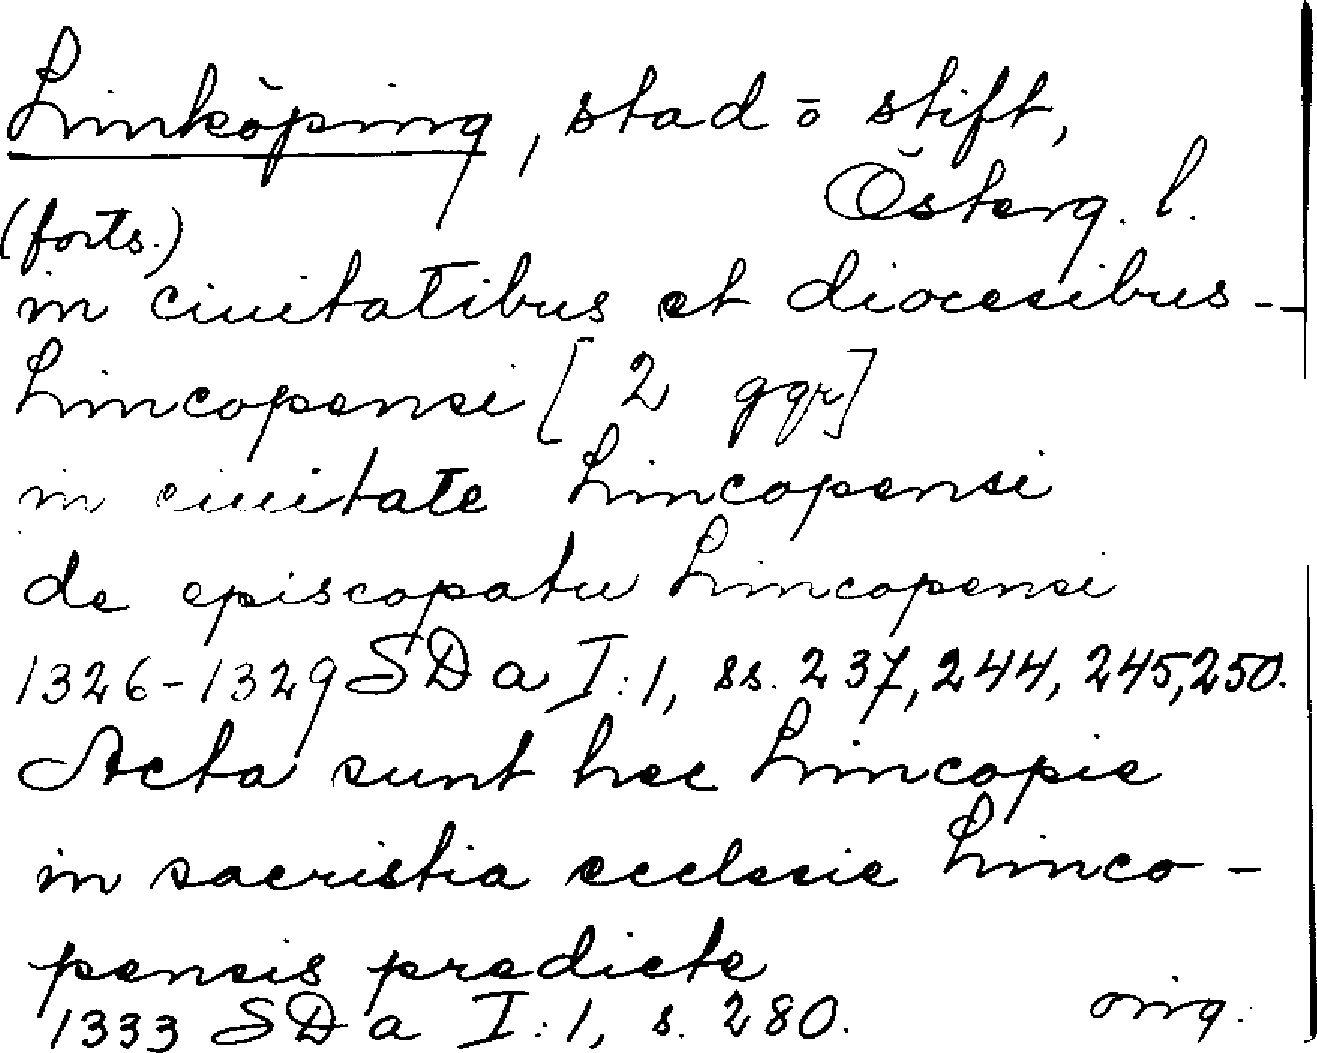 Linköping, stad o stift,
Österg. l.
(forts.)
in ciuitatibus et diocesibus -
Lincopensi [2 ggr]
in ciuitate Lincopensi
de episcopatu Lincopensi
1326-1329 SDa I:1, ss. 237, 244, 245, 250.
Acta sunt hec Lincopie
in sacristia ecclesie Linco-
pensis predicte
1333 SDa I:1, s. 280. orig.